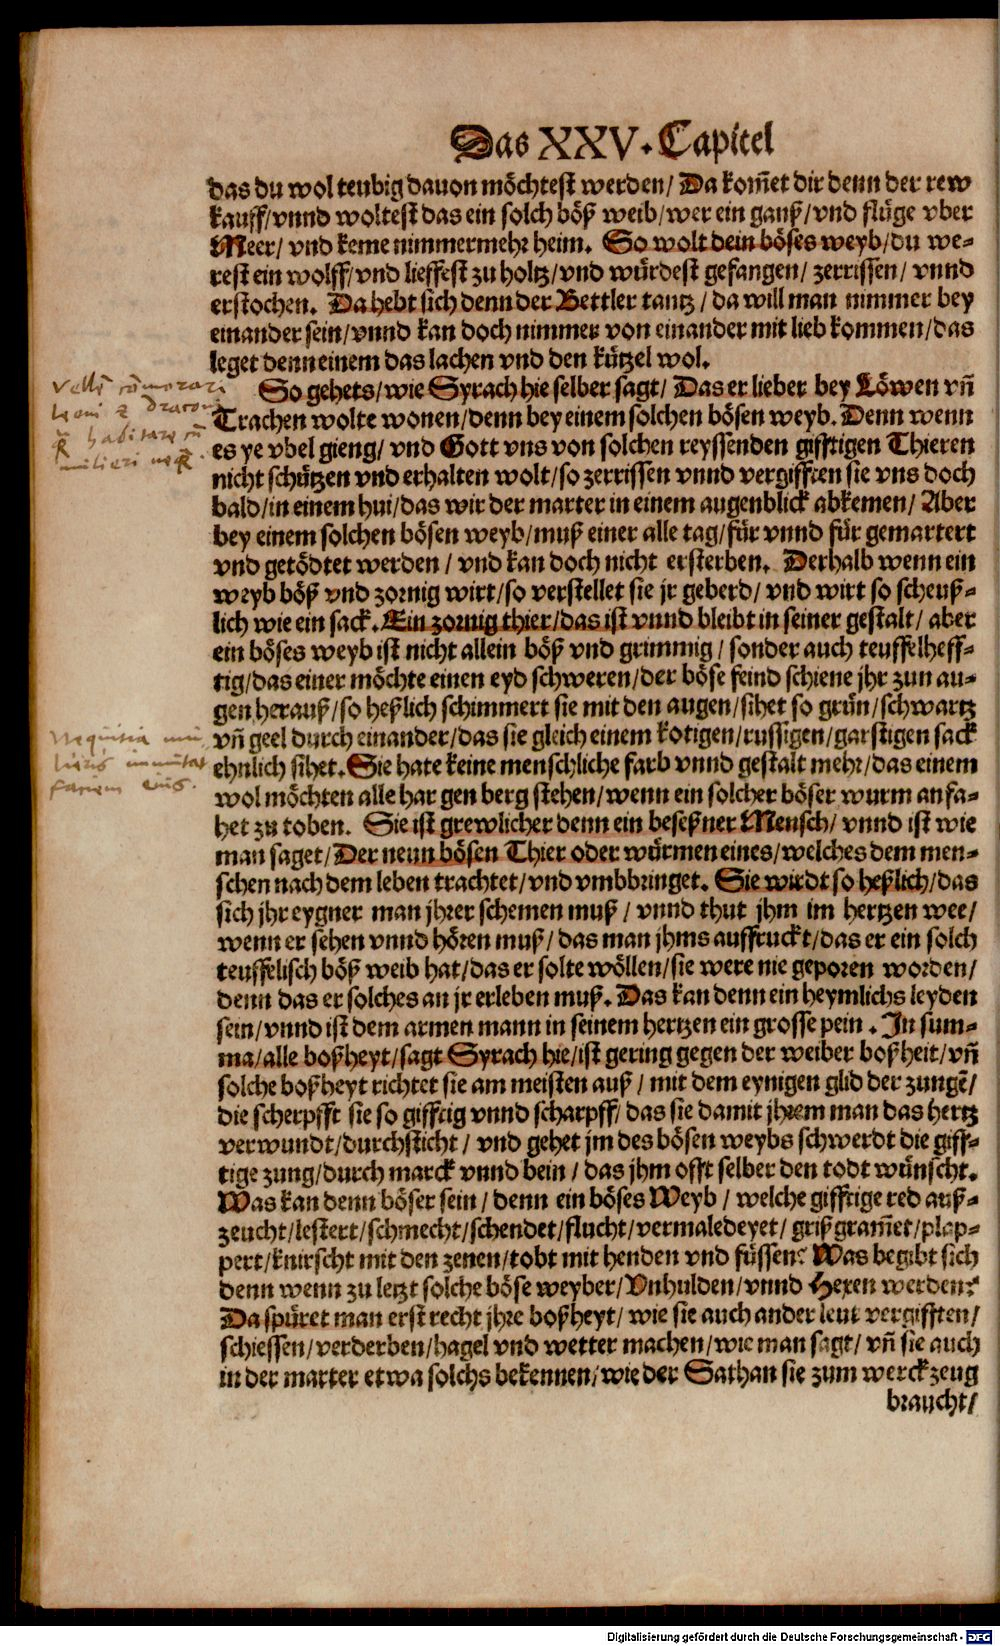 Das XXV. Capitel
das du wol teubig dauon möchtest werden/ Da kom̄et dir denn der rew
kauff/ vnnd woltest das ein solch böß weib/ wer ein ganß/ vnd flüge vber
Meer/ vnd keme nimmermehr heim. So wolt dein böses weyb/ du we-
rest ein wolff/ vnd lieffest zu holtz/ vnd würdest gefangen/ zerrissen/ vnnd
erstochen. Da hebt sich denn der Bettler tantz/ da will man nimmer bey
einander sein/ vnnd kan doch nimmer von einander mit lieb kommen/ das
leget denn einem das lachen vnd den kützel wol.
So gehets/ wie Syrach hie selber sagt/ Das er lieber bey Löwen vn̄
Trachen wolte wonen/ denn bey einem solchen bösen weyb. Denn wenn
es ye vbel gieng/ vnd Gott vns von solchen reyssenden gifftigen Thieren
nicht schützen vnd erhalten wolt/ so zerrissen vnnd vergifften sie vns doch
bald/ in einem hui/ das wir der marter in einem augenblick abkemen/ Aber
bey einem solchen bösen weyb/ muß einer alle tag/ für vnnd für gemartert
vnd getödtet werden/ vnd kan doch nicht ersterben. Derhalb wenn ein
weyb böß vnd zornig wirt/ so verstellet sie jr geberd/ vnd wirt so scheuß-
lich wie ein sack. Ein zornig thier/ das ist vnnd bleibt in seiner gestalt/ aber
ein böses weyb ist nicht allein böß vnd grimmig/ sonder auch teuffelheff-
tig/ das einer möchte einen eyd schweren/ der böse feind schiene jhr zun au-
gen herauß/ so heßlich schimmert sie mit den augen/ sihet so grün/ schwartz
vn̄ geel durch einander/ das sie gleich einem kotigen/ russigen/ garstigen sack
ehnlich sihet. Sie hate keine menschliche farb vnnd gestalt mehr/ das einem
wol möchten alle har gen berg stehen/ wenn ein solcher böser wurm anfa-
het zu toben. Sie ist grewlicher denn ein beseßner Mensch/ vnnd ist wie
man saget/ Der neun bösen Thier oder würmen eines/ welches dem men-
schen nach dem leben trachtet/ vnd vmbbringet. Sie wirdt so heßlich/ das
sich jhr eygner man jhrer schemen muß/ vnnd thut jhm im hertzen wee/
wenn er sehen vnnd hören muß/ das man jhms auffruckt/ das er ein solch
teuffelisch böß weib hat/ das er solte wöllen/ sie were nie geporen worden/
denn das er solches an jr erleben muß. Das kan denn ein heymlichs leyden
sein/ vnnd ist dem armen mann in seinem hertzen ein grosse pein. In sum-
ma/ alle boßheyt/ sagt Syrach hie/ ist gering gegen der weiber boßheit/ vn̄
solche boßheyt richtet sie am meisten auß/ mit dem eynigen glid der zungē/
die scherpfft sie so gifftig vnnd scharpff/ das sie damit jhrem man das hertz
verwundt/ durchsticht/ vnd gehet jm des bösen weybs schwerdt die giff-
tige zung/ durch marck vnnd bein/ das jhm offt selber den todt wünscht.
Was kan denn böser sein/ denn ein böses Weyb/ welche gifftige red auß-
zeucht/ lestert/ schmecht/ schendet/ flucht/ vermaledeyet/ grißgram̄et/ plap-
pert/ knirscht mit den zenen/ tobt mit henden vnd füssen? Was begibt sich
denn wenn zu letzt solche böse weyber/ Vnhulden/ vnnd Hexen werden?
Da spüret man erst recht jhre boßheyt/ wie sie auch ander leut vergifften/
schiessen/ verderben/ hagel vnd wetter machen/ wie man sagt/ vn̄ sie auch
in der marter etwa solchs bekennen/ wie der Sathan sie zum werckzeug
braucht/
Velle com̄orari
leoni & draconi
habitare cū
mulieri neq̄.
Nequitia mu
lieris immutat
faciem eius.
Digitalisierung gefördert durch die Deutsche Forschungsgemeinschaft - DFG